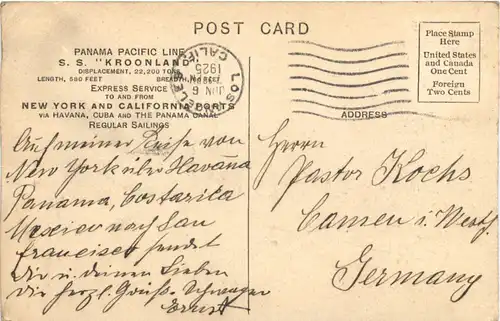 POST CARD
PANAMA PACIFIC LINE
S. S. "KROONLAND"
DISPLACEMENT, 22,200 TONS
LENGTH, 580 FEET BREADTH, 60 FEET
EXPRESS SERVICE
TO AND FROM
NEW YORK AND CALIFORNIA PORTS
VIA HAVANA, CUBA AND THE PANAMA CANAL
REGULAR SAILINGS
LOS ANGELES
CALIF.
JUN 6
1925
Place Stamp
Here
United States
and Canada
One Cent
Foreign
Two Cents
ADDRESS
Auf meiner Reise von
New York über Havana
Panama, Costarica
Mexico nach San
Francisco sendet
Dir u. deinen Lieben
die herzl. Grüße Schwager
Ernst
Herrn
Pastor Kochs
Camen i. Westf.
Germany